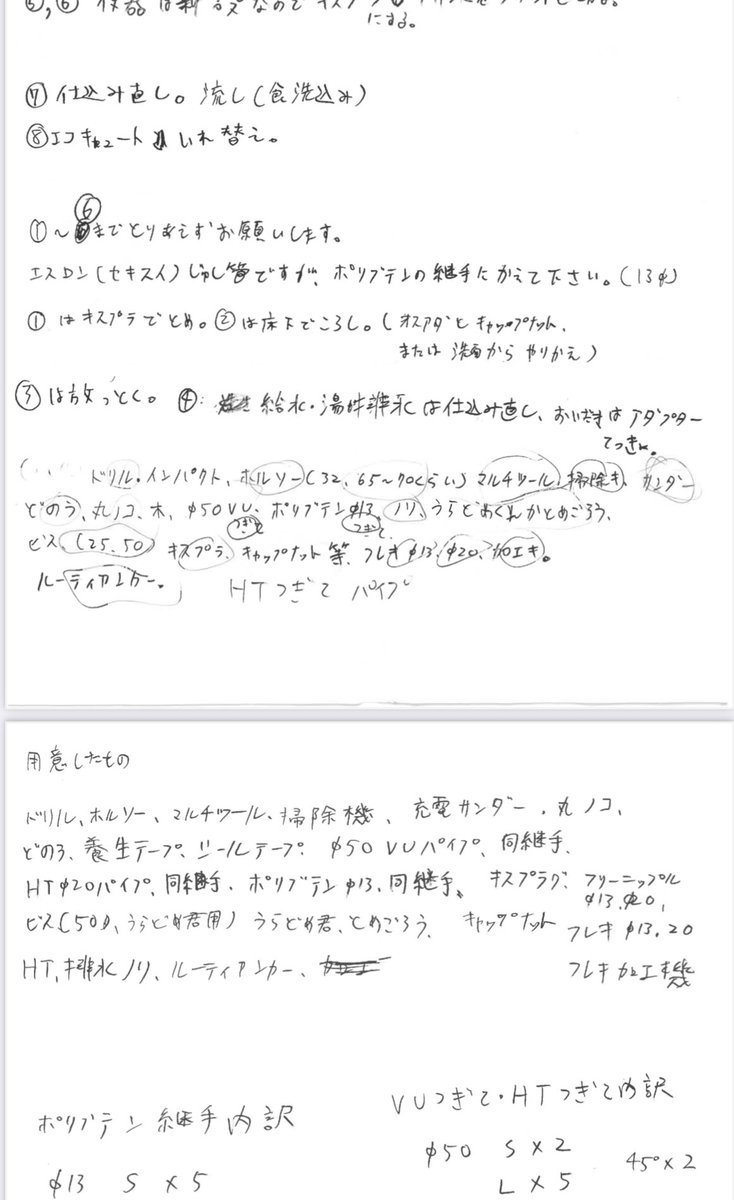 ⑦ 仕込み直し。流し(食洗込み)
⑧エコキュート いれ替え。
①～⑥までとりあえずお願いします。
エスロン(セキスイ)じゅし管ですが、ポリブテンの継手にかえて下さい。(13φ)
①はオスプラでとめ。②は床下でころし。(オスアダとキャップナット、
または洗面からやりかえ)
③は放っとく。④:給水・湯排水は仕込み直し、おいだきはアダプター
てっきょ。
ドリル・インパクト、ホルソー(32、65～70くらい)マルチツール、掃除き、サンダー
どのう、丸ノコ、木、φ50VU、ポリブテンφ13、ノリ、うらどめくんかとめごろう、
つぎて つぎて
ビス、(25、50) オスプラ、キャップナット等、フレキφ13、φ20、加工キ。
ルーティアンカー。 HTつぎて パイプ
用意したもの
ドリル、ホルソー、マルチツール、掃除機、充電サンダー、丸ノコ、
どのう、養生テープ、シールテープ φ50 VUパイプ、同継手、
HTφ20パイプ、同継手、ポリブテンφ13、同継手、オスプラグ、フリーニップル
φ13、φ20、
ビス(50、うらどめ君用)うらどめ君、とめごろう、キャップナット フレキφ13、20
HT、排水ノリ、ルーティアンカー、 フレキ加工機
ポリブテン継手内訳
VUつぎて・HTつぎて内訳
φ50 S×2 45°×2
L×5
φ13 S×5